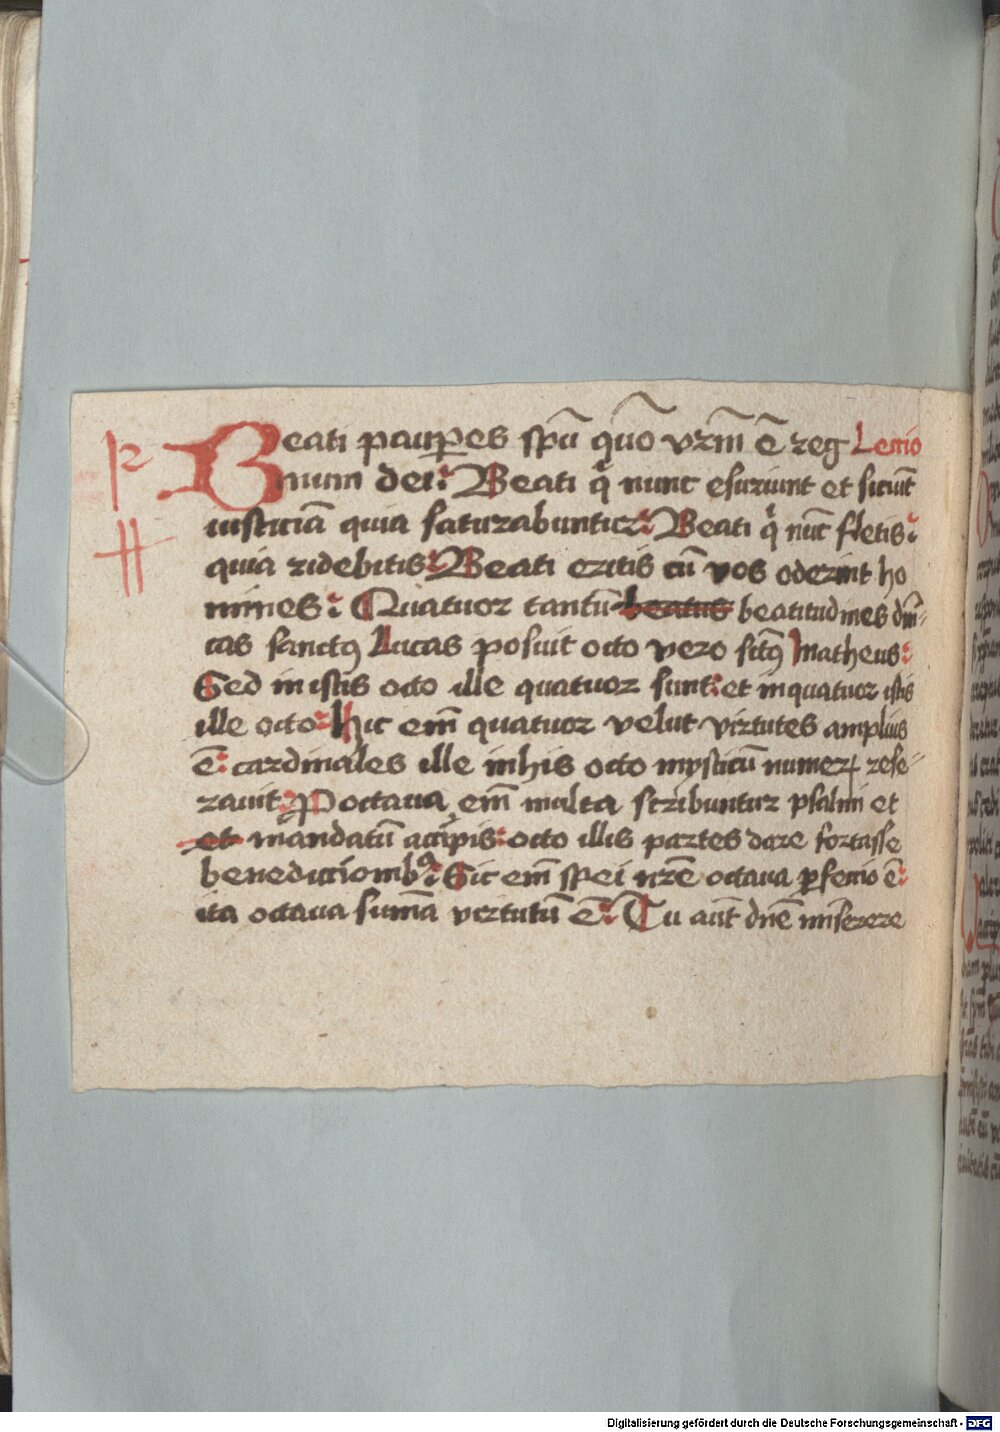 Beati paup̲es sp̄u qm̄o vr̄m ē reg Lectio
num dei: Beati q̄ nunc esuriunt et siciūt
iusticiā quia saturabuntur: Beati q̄ nūc fletis:
quia ridebitis: Beati eritis cū vos oderint ho
mines: Quatuor tantū beatus beatitudines dn̄i-
cas sanctꝰ Lucas posuit octo vero sctꝰ Matheus:
Sed in istis octo ille quatuor sunt: et in quatuor istis
ille octo: hic em̄ quatuor velut virtutes amplius
ē: cardinales ille in his octo mysticū numeꝝ rese-
rauit: P octaua em̄ multa scribuntur psalmi et
et mandatū accipis: octo illis partes dare fortasse
benedictionibꝰ: Sic em̄ spei nr̄e octaua ꝑfectio ē:
ita octaua sum̄a virtutū ē: Tu aūt dn̄e miserere
Digitalisierung gefördert durch die Deutsche Forschungsgemeinschaft - DFG